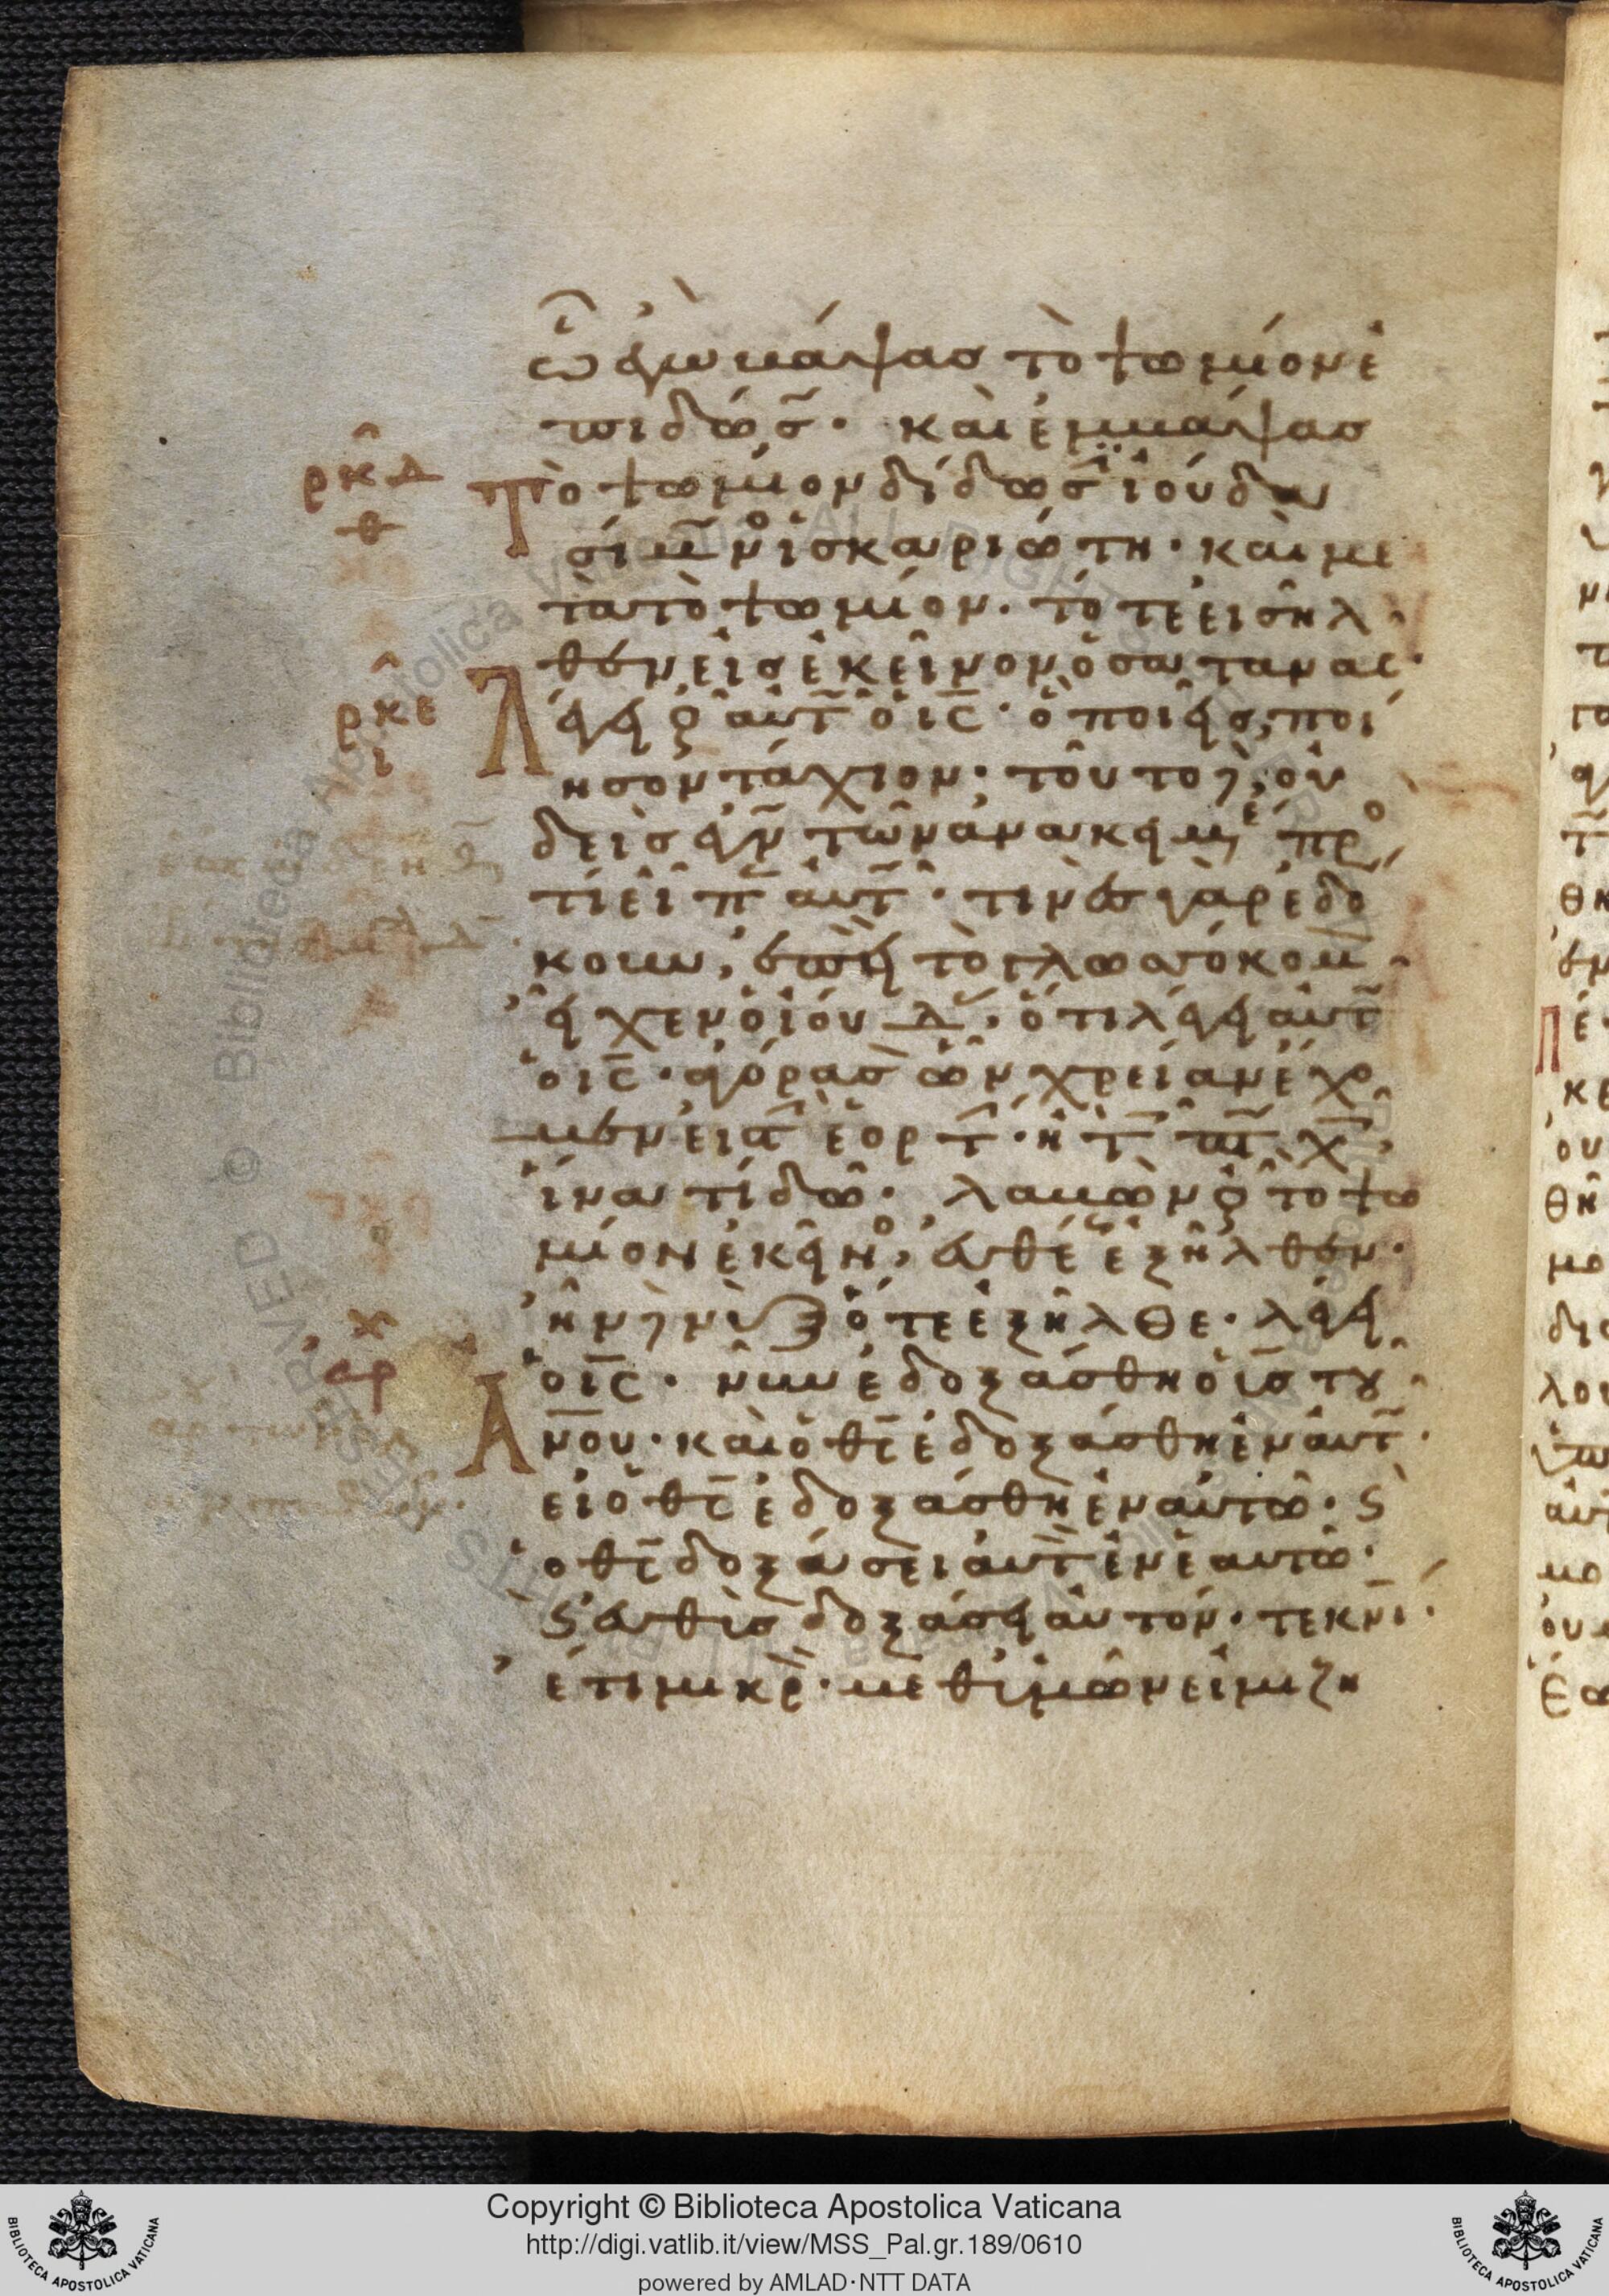 ῷ ἐγὼ βάψας τὸ ψωμίον ἐ
πιδώσ̃· καὶ ἐμβάψας
ρκδ
θ
Τὸ ψωμίον δίδωσῖ ἰούδα
σίμν̃ ἰσκαριώτη· καὶ με
τὰ τὸ ψωμίον· τότε εἰσῆλ
θεν εἰς ἐκεῖνον ὁ σατανας·
ρκε
ι
Λέγει ὀ͂ αὐτ̃ ὁ ις̅· ὃ ποιεῖς, ποί
ησον τάχιον· τοῦτο δὲ οὐ
δεὶς ἔγν̃ τῶν ἀνακειμέ πρὸ
τί εἶπ̃ αὐτ̃· τινὲς γὰρ ἐδό
κουν, ἐπεὶ τὸ γλωσσόκομ̅
εἶχεν ὁ ἰούδ̅, ὅτι λέγει αὐτ̃
ὁ ις̅· ἀγόρασὸ ὧν χρείαν ἔχο
μεν εἰς τ̀ ἑορτ̀· ἢ τ̃ πτ̃ χ̃,
ἵνα τί δῶ· λαβὼν ὀ͂ τὸ ψω
μίον ἐκεῖνο, εὐθέ ἐξῆλθεν·
ἦν δὲ νὺξ ὅτε ἐξῆλθε· λέγει
ὁ ις̅· νῦν ἐδοξάσθη ὁ ϊς τȣ
αρ
Α̅νου· καὶ ὁ θς̅ ἐδοξάσθη ἐν αὐτ̃·
εἰ ὁ θς̅ ἐδοξάσθη ἐν αὐτῶ· ϛ̀
ὁ θς̅ δοξάσει αὐτ̀ ἐν ἑαυτῶ·
ϛ̀ εὐθὺς δοξάσει αὐτόν· τεκνί·
ἔτι μικρ̀· μεθ ὑμῶν εἰμι ζη
Copyright © Biblioteca Apostolica Vaticana
http://digi.vatlib.it/view/MSS_Pal.gr.189/0610
powered by AMLAD·NTT DATA
BIBLIOTECA APOSTOLICA VATICANA
BIBLIOTECA APOSTOLICA VATICANA